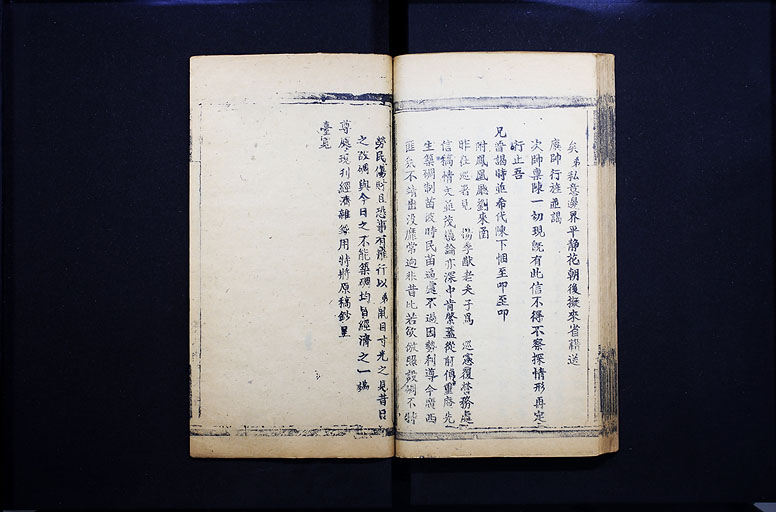 矣弟私意邊界平靜花朝後擬來省藉送
廉帥行旌並謁
次帥稟陳一切現既有此信不得不察探情形再定
行止吾
兄晉謁時並希代陳下悃至叩至叩
附鳳凰廳劉來函
昨在巡署見 湯季猷老夫子爲 巡憲覆督務處
信稿情文並茂議論亦深中肯綮蓋從前傅重庵先
生築碉制苗彼時民苗逼處不過因勢利導今廣西
匪衆不靖出沒靡常逈非昔比若欲倣照設碉不特
勞民傷財且恐事有難行以弟鼠目寸光之見昔日
之改碉與今日之不能築碉均皆經濟之一端
尊處現刊經濟雜錄用特將原稿鈔呈
臺覽